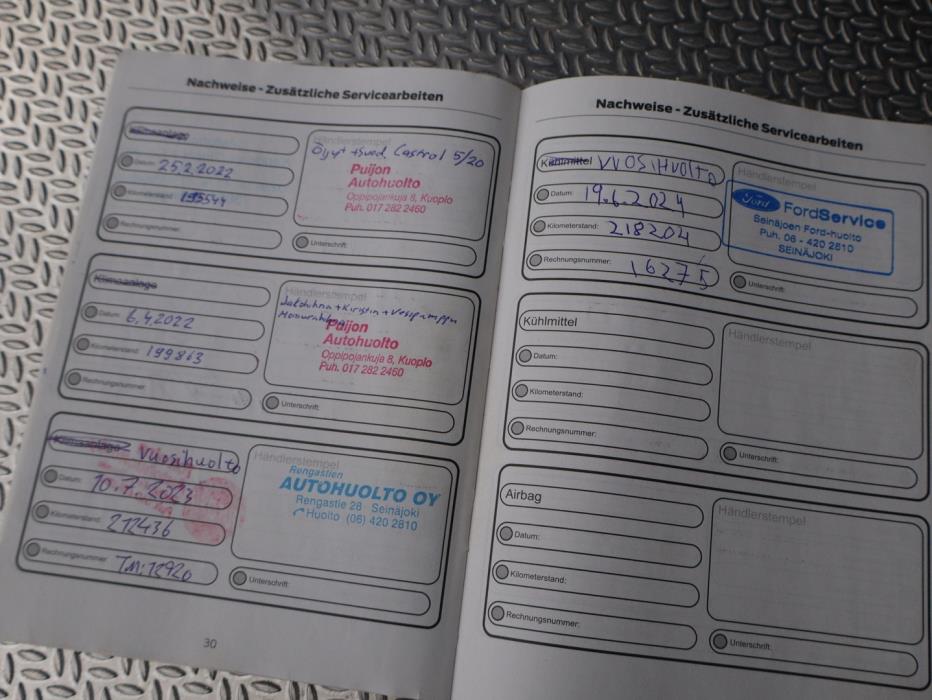 Nachweise - Zusätzliche Servicearbeiten
Klimaanlage
Datum: 25.2.2022
Kilometerstand: 195544
Rechnungsnummer:
Händlerstempel
Öljyt + suod. Castrol 5/20
Puijon
Autohuolto
Oppipojankuja 8, Kuopio
Puh. 017 282 2460
Unterschrift:
Klimaanlage
Datum: 6.4.2022
Kilometerstand: 199863
Rechnungsnummer:
Händlerstempel
Jakohihna + Kiristin + Vesipumppu
Puijon
Autohuolto
Oppipojankuja 8, Kuopio
Puh. 017 282 2460
Unterschrift:
Klimaanlage Vuosihuolto
Datum: 10.7.2023
Kilometerstand: 212436
Rechnungsnummer: TM:12920
Händlerstempel
Rengastien
AUTOHUOLTO OY
Rengastie 28 Seinäjoki
Huolto (06) 420 2810
Unterschrift:
30
Nachweise - Zusätzliche Servicearbeiten
Kühlmittel VUOSIHUOLTO
Datum: 19.6.2024
Kilometerstand: 218204
Rechnungsnummer: 16275
Händlerstempel
Ford FordService
Seinäjoen Ford-huolto
Puh. 06 - 420 2810
SEINÄJOKI
Unterschrift:
Kühlmittel
Datum:
Kilometerstand:
Rechnungsnummer:
Händlerstempel
Unterschrift:
Airbag
Datum:
Kilometerstand:
Rechnungsnummer:
Händlerstempel
Unterschrift: